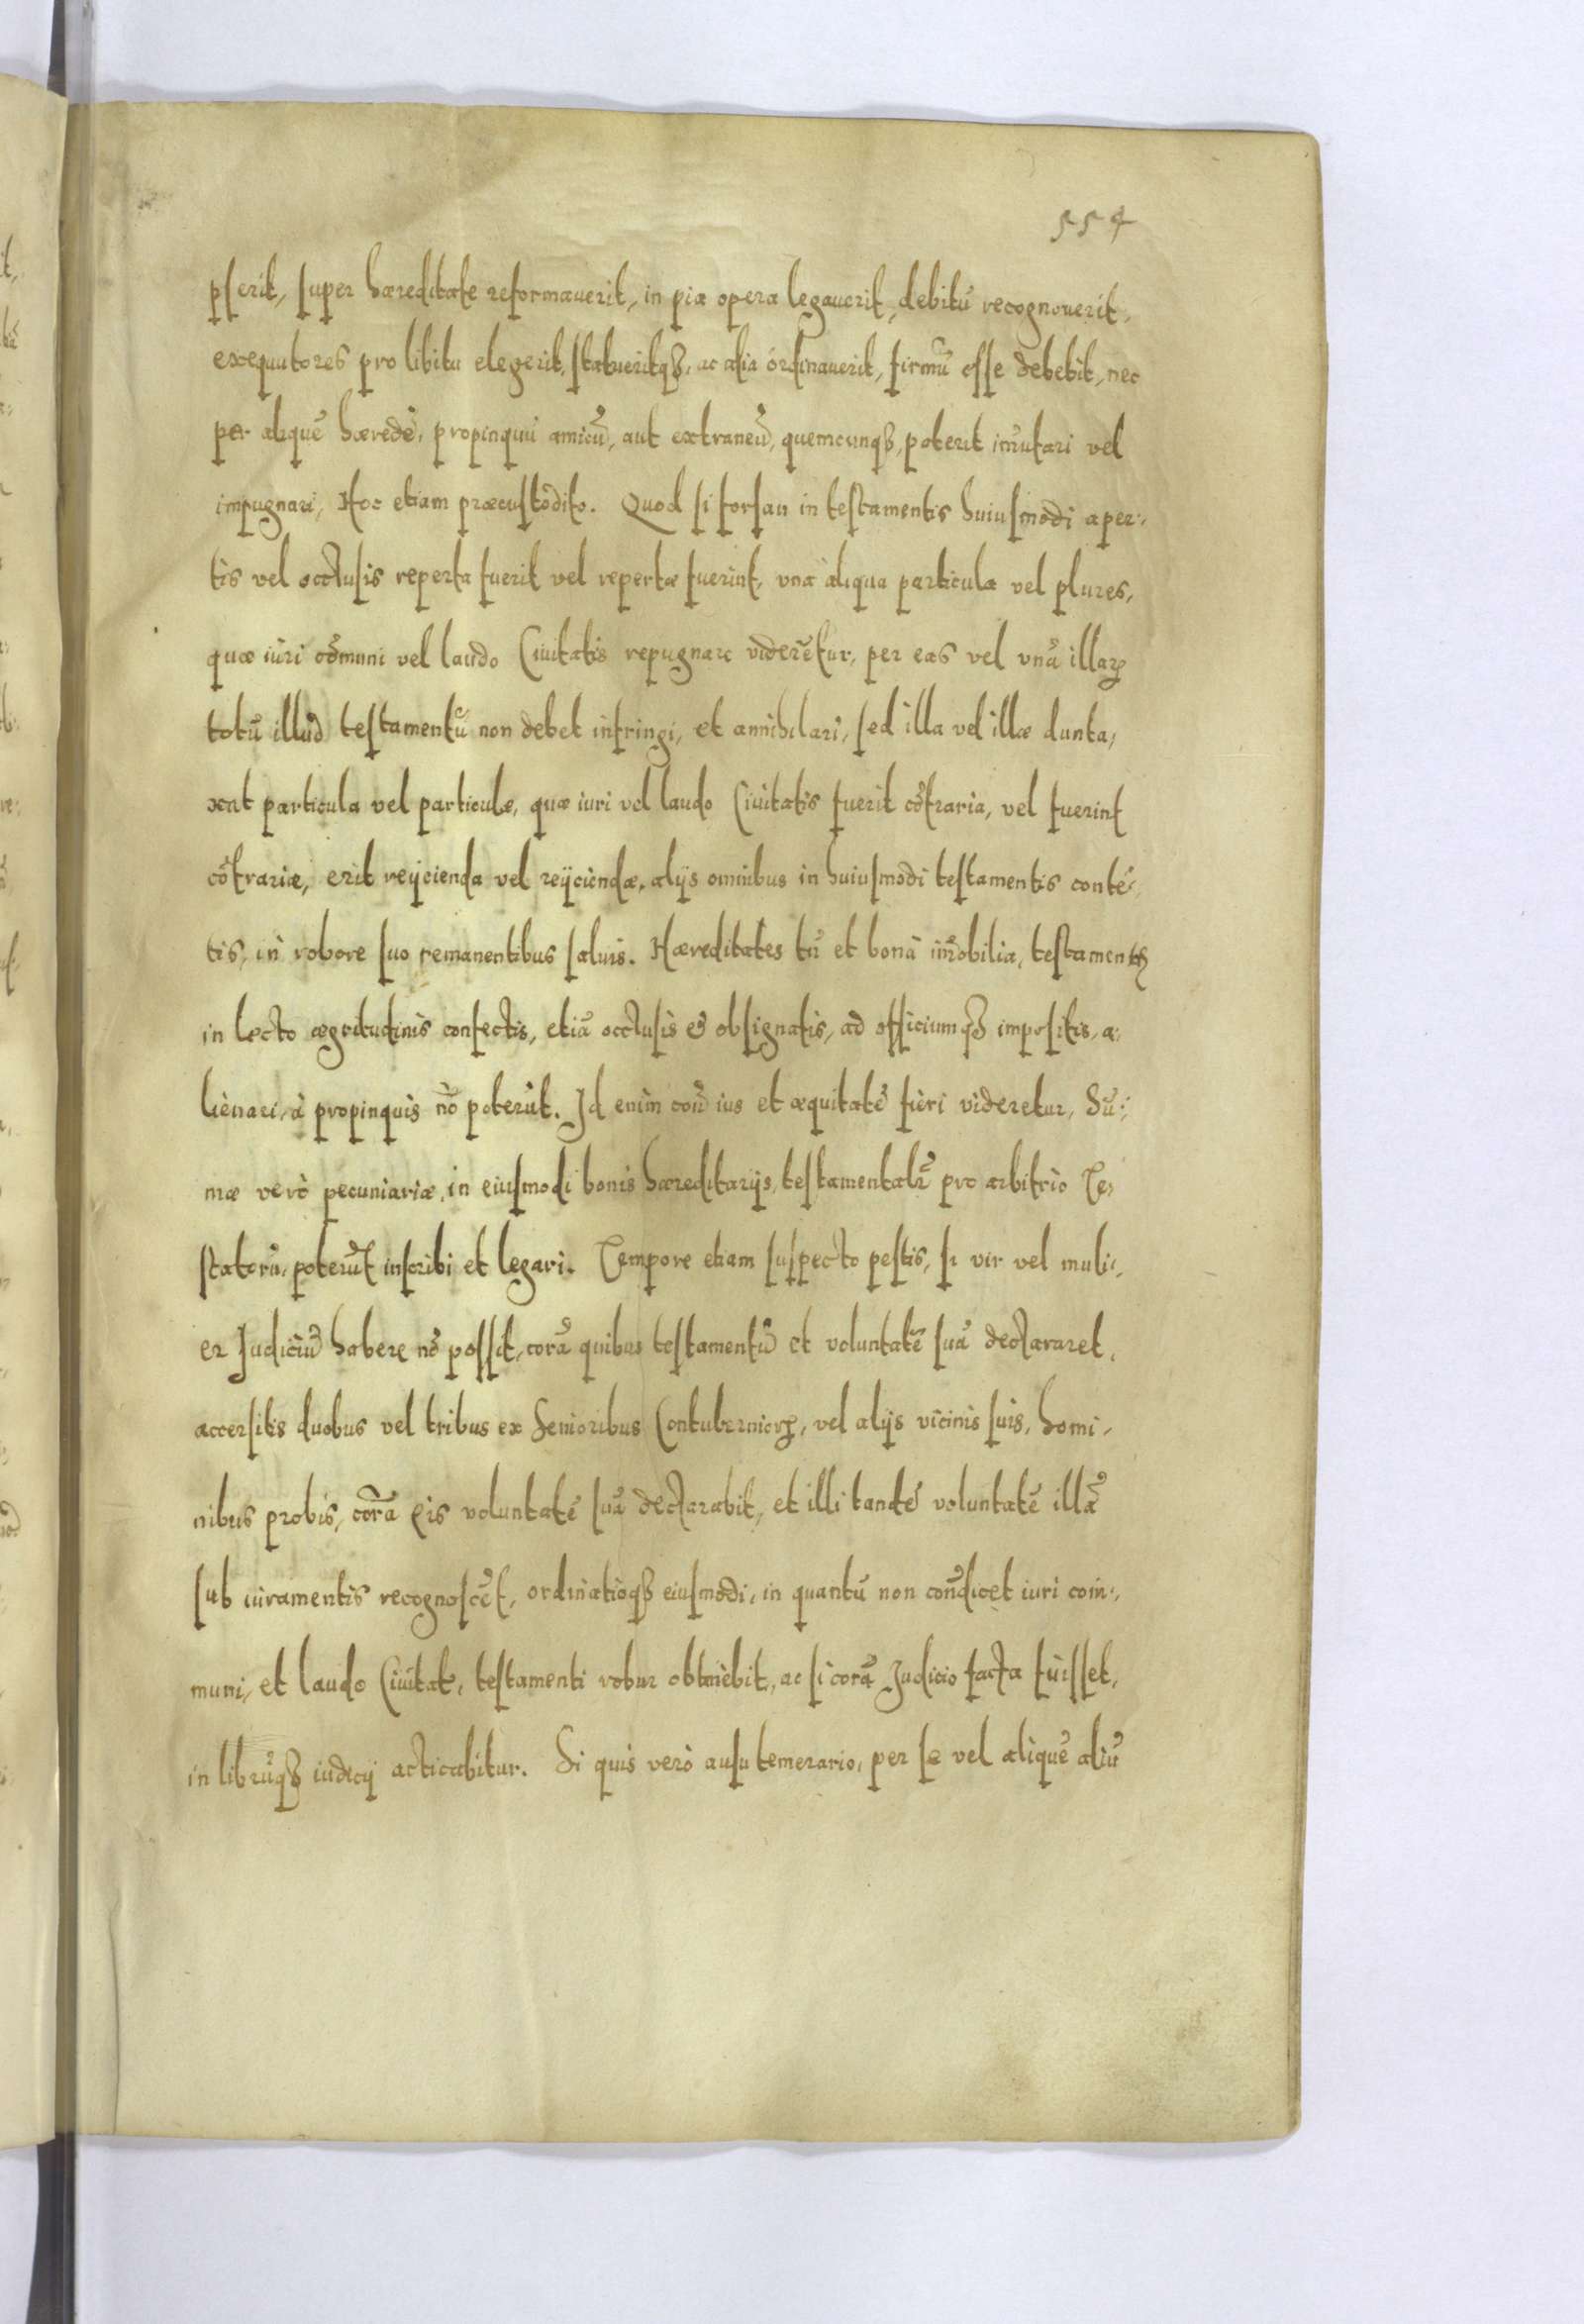 554
pserit, super hæreditate reformauerit, in pia opera legauerit, debitū recognouerit,
exequutores pro libitu elegerit, statueritqȝ, ac alia órdinauerit, firmū esse debebit, nec
per aliquē hæredē, propinquū amicū, aut extraneū, quemcunqȝ, poterit im̄utari vel
impugnari, Hoc etiam præcustodito. Quod si forsan in testamentis huiusmodi aper:
tis vel occlusis reperta fuerit vel repertæ fuerint, vna aliqua particula vel plures,
quæ iuri cōmuni vel laudo Ciuitatis repugnare viderētur, per eas vel vnā illaꝝ
totū illud testamentū non debet infringi, et annihilari, sed illa vel illæ dunta,
xat particula vel particulæ, quæ iuri vel laudo Ciuitatis fuerit cōtraria, vel fuerint
cōtrariæ, erit reijcienda vel reijciendæ, alijs omnibus in huiusmodi testamentis contē,
tis, in robore suo remanentibus saluis. Hæreditates tn̄ et bona im̄obilia, testamentis
in lecto ægritudinis confectis, etiā occlusis & obsignatis, ad officiumqȝ impositis, a:
lienari, à propinquis nō poterūt. Id enim con̄ ius et æquitatē fieri videretur, Sū:
mæ verò pecuniariæ, in eiusmodi bonis hæreditarijs, testamentalr̄ pro arbitrio Te,
statorū, poterūt inscribi et legari. Tempore etiam suspecto pestis, si vir vel muli:
er Judiciū habere nō possit, corā quibus testamentū et voluntatē suā declararet,
accersitis duobus vel tribus ex Senioribus Contubernioꝝ, vel alijs vicinis suis, homi,
nibus probis, corā eis voluntatē suā declarabit, et illi tandē voluntatē illā
sub iuramentis recognoscēt, ordinatioqȝ eiusmodi, in quantū non con̄dicet iuri com:
muni, et laudo Ciuitat, testamenti robur obtinebit, ac si corā Judicio facta fuisset,
in librūqȝ iudicij acticabitur. Si quis verò ausu temerario, per se vel aliquē aliū